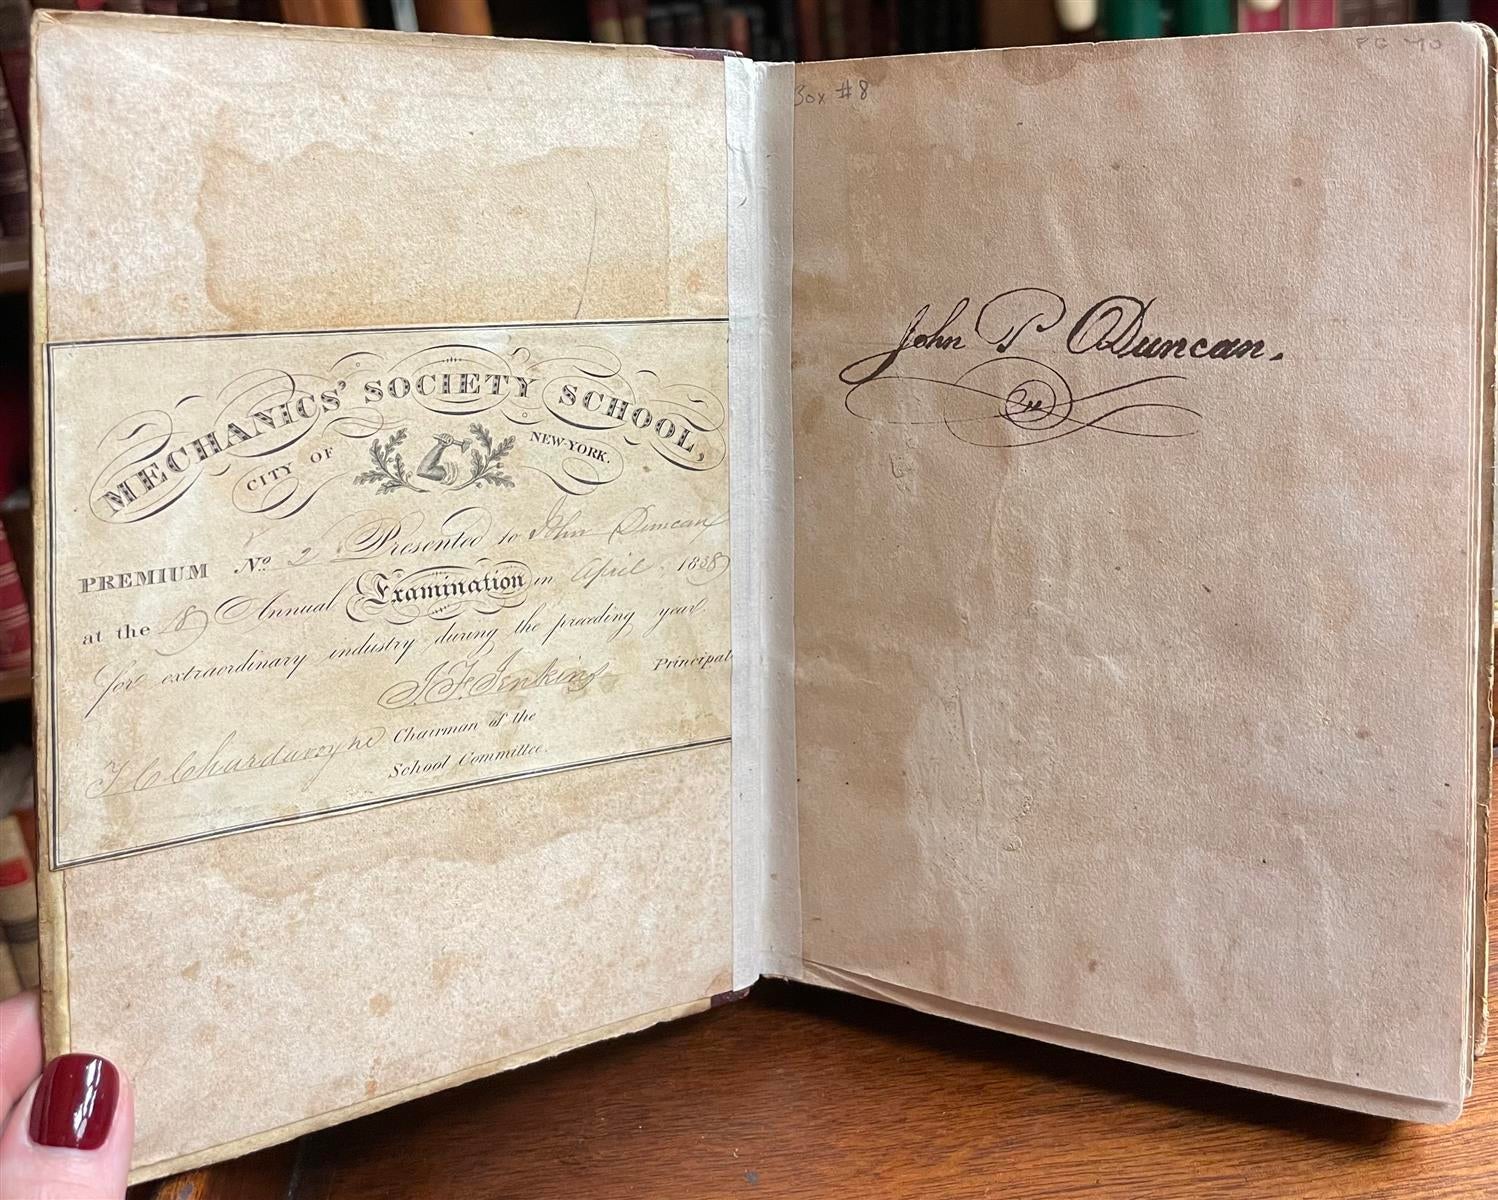 MECHANICS' SOCIETY SCHOOL,
CITY OF NEW-YORK.
PREMIUM No. 2 Presented to John Duncan
at the 8 Annual Examination in April 1838
for extraordinary industry during the preceding year.
J. F. Jenkins Principal
Chairman of the
School Committee.
Box #8
John P Duncan.